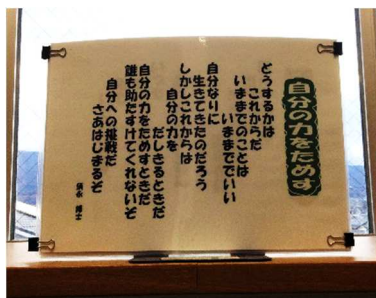 自分の力をためす
どうするかは
これからだ
いままでのことは
いままででいい
自分なりに
生きてきたのだろう
しかしこれからは
自分の力を
だしきるときだ
自分の力をためすときだ
誰も助だすけてくれないぞ
自分への挑戦だ
さあはじまるぞ
須永 博士